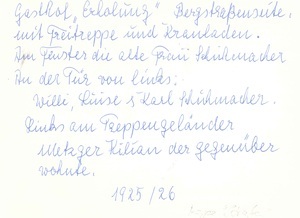 Gasthof „Erholung" Bergstraßenseite,
mit Freitreppe und Kranladen.
Am Fenster die alte Frau Schuhmacher
An der Tür von links:
Willi, Luise & Karl Schuhmacher.
Links am Treppengeländer
Metzger Kilian der gegenüber
wohnte.
1925/26